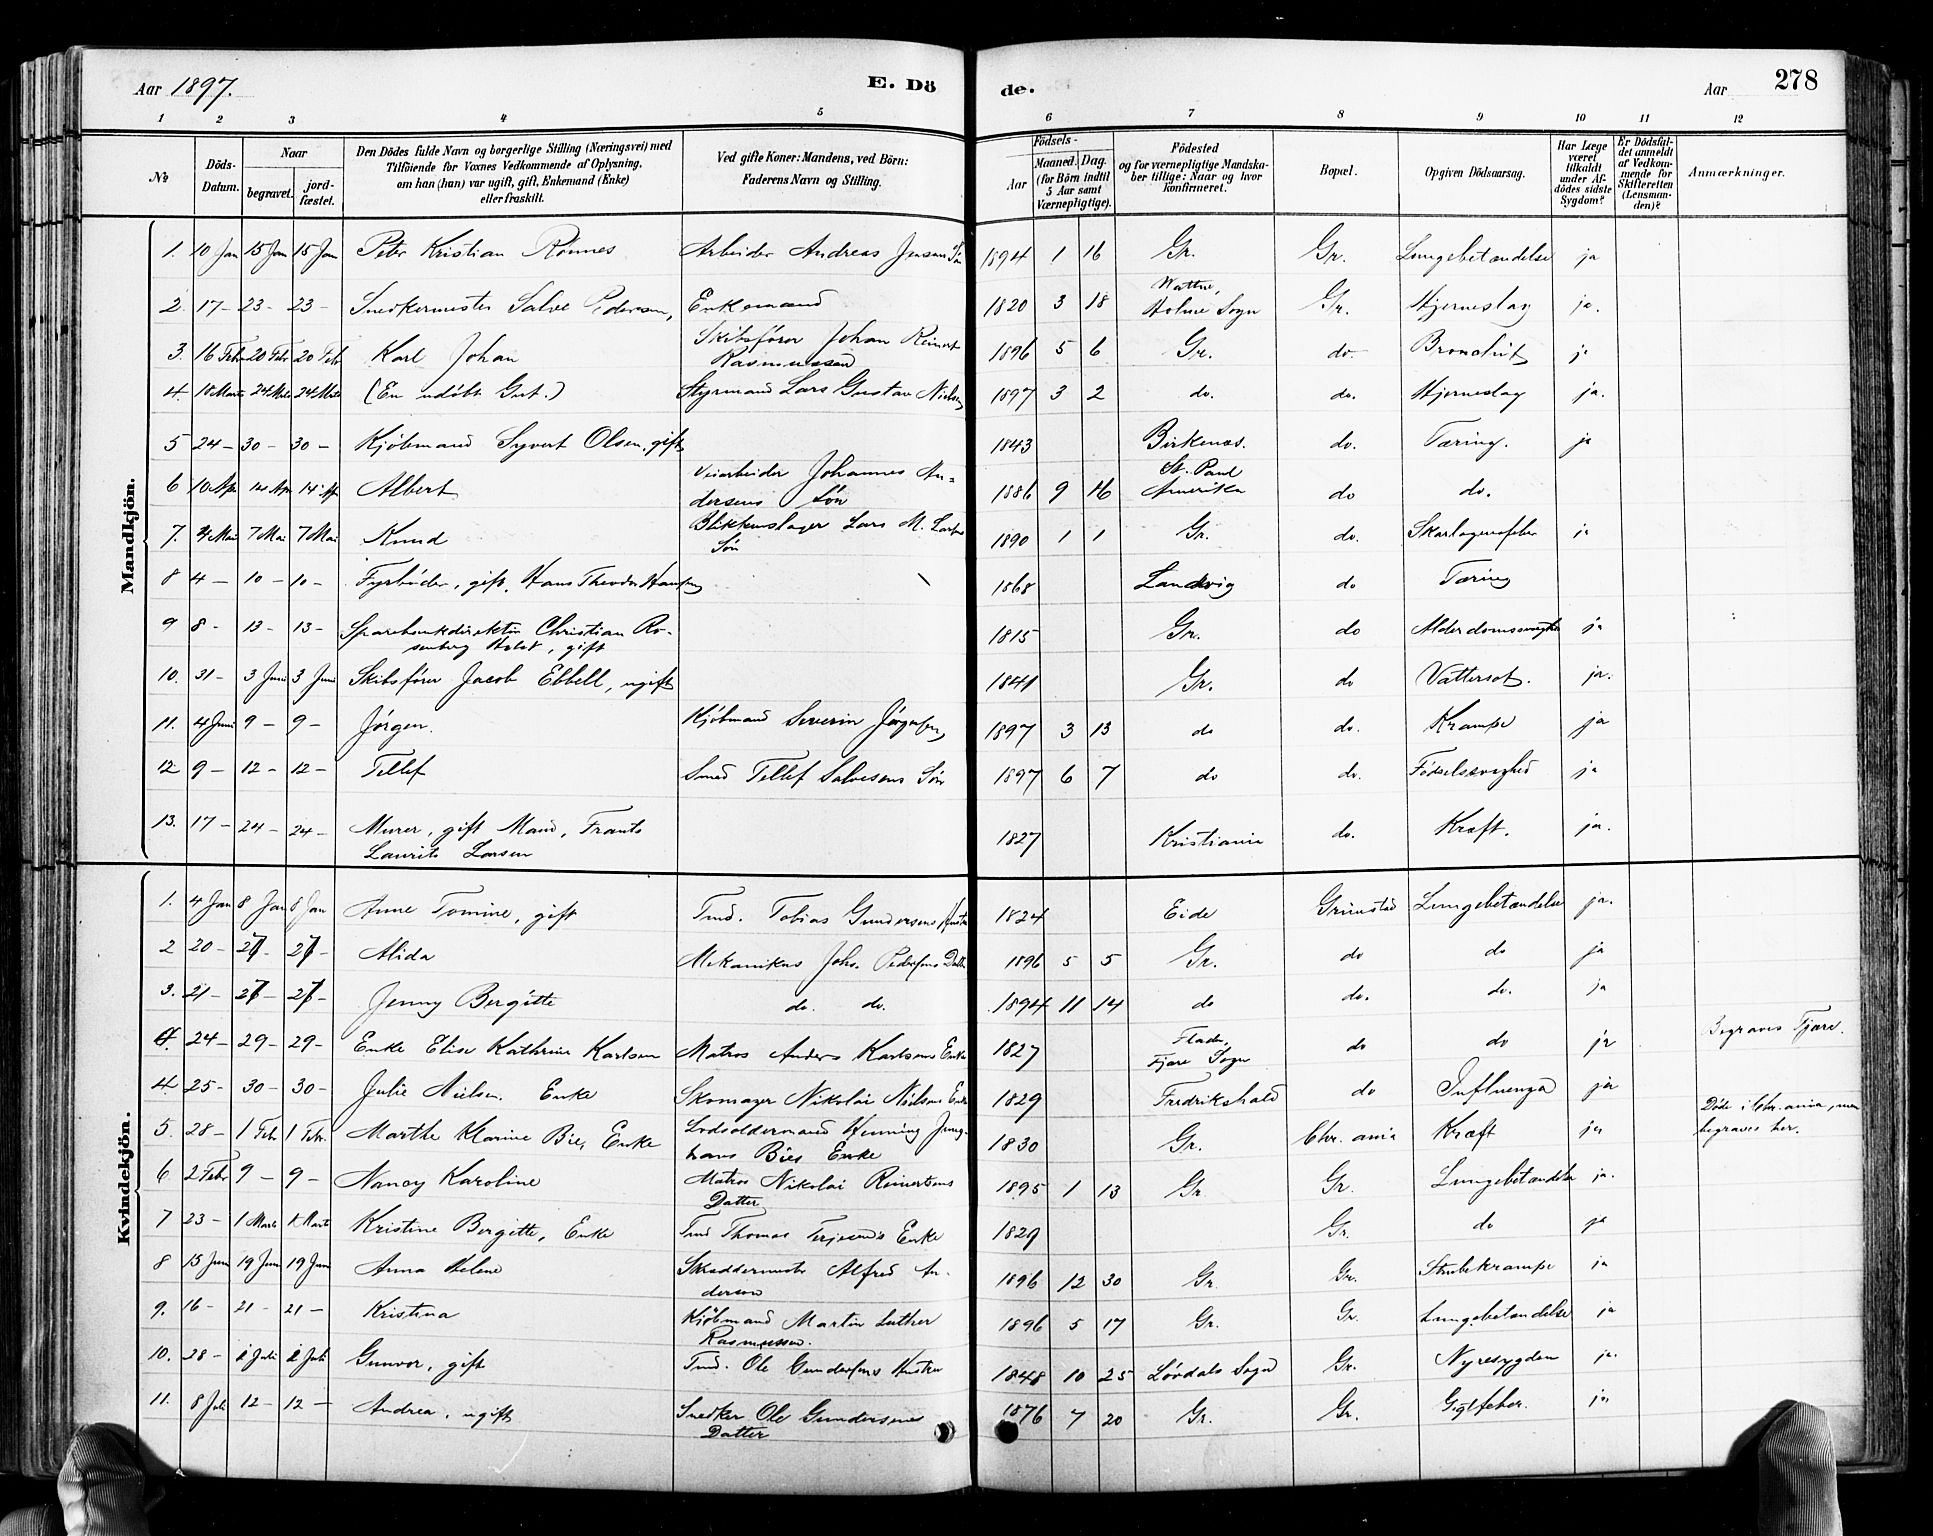 Aar 1897. E. Dö de. Aar 278
1 2 3 4 5 6 7 8 9 10 11 12
№ Döds-Datum. Naar begravet. jordfæstet. Den Dödes fulde Navn og borgerlige Stilling (Næringsvei) med Tilföiende for Voxnes Vedkommende af Oplysning, om han (hun) var ugift, gift, Enkemand (Enke) eller fraskilt. Ved gifte Koner: Mandens, ved Börn: Faderens Navn og Stilling. Födsels- Aar Maaned. Dag. (for Börn indtil 5 Aar samt Værnepligtige). Födested og for værnepligtige Mandskaber tillige: Naar og hvor konfirmeret. Bopæl. Opgiven Dödsaarsag. Har Læge været tilkaldt under Afdödes sidste Sygdom? Er Dödsfaldet anmeldt af Vedkommende for Skifteretten (Lensmanden)? Anmærkninger.
Mandkjön.
1. 10 Jan 15 Jan 15 Jan Peter Kristian Rønnes Arbeider Andreas Jensens Søn 1894 1 16 Gr. Gr. Lungebetændelse ja
2. 17 - 23 - 23 - Snedkermester Salve Pedersen, Enkemand 1820 3 18 Holme Sogn Gr. Hjerneslag ja.
3. 16 Febr 20 Febr 20 Febr Karl Johan Skibsfører Johan Reinert Rasmussen 1896 5 6 Gr. do Bronchit ja
4. 18 Marts 24 Mts 24 Mts (En udøbt Gut.) Styrmand Lars Gustav Nielsen 1897 3 2 do. do. Hjerneslag ja.
5 24 - 30 - 30 - Kjøbmand Syvert Olsen, gift 1843 Birkenæs. do. Tæring. ja
6 10 Apr 14 Apr 14 Ap Albert Veiarbeider Johannes Andersens Søn 1886 9 16 St. Paul Amerika do do.
7. 4 Mai 7 Mai 7 Mai Knud Blikkenslager Lars M. Larsens Søn 1890 1 1 Gr. do. Skarlagensfeber ja
8 4 - 10 - 10 - Fyrbøder, gift, Hans Theodor Hansen 1868 Landvig do Tæring
9 8 - 13 - 13 - Sparebankdirektør Christian Rosenberg Holst, gift 1815 Gr. do Alderdomssvaghed ja
10. 31 - 3 Juni 3 Juni Skibsfører Jacob Ebbell, ugift 1841 Gr. do Vattersot. ja.
11. 4 Juni 9 - 9 - Jørgen. Kjøbmand Severin Jørgensen 1897 3 13 do do. Krampe ja
12 9 - 12 - 12 - Tellef Smed Tellef Salvesens Søn 1897 6 7 do do. Fødselssvaghed ja
13. 17 - 24 - 24 - Murer, gift Mand, Frants Laurits Larsen 1827 Kristiania do. Kræft. ja.
Kvindekjön.
1. 4 Jan 8 Jan 8 Jan Anne Tomine, gift Tmd. Tobias Gundersens Hustru 1824 Eide Grimstad Lungebetændelse ja.
2 20 - 27 - 27 - Alida Mekanikus Johs. Pedersens Datter 1896 5 5 Gr. do do ja
3. 21 - 27 - 27 - Jenny Bergitte do. do. 1894 11 14 do do. do. ja
24 - 29 - 29 - Enke Elise Kathrine Karlsen Matros Anders Karlsens Enke 1827 Fjære Sogn do do ja Begraves Fjære.
4. 25 - 30 - 30 - Julie Nielsen. Enke Skomager Nikolai Nielsens Enke 1829 Fredrikshald do Influenza ja
5. 28 - 1 Febr 1 Febr. Marthe Marine Bie, Enke Lodsoldermand Henning Junghans Bies Enke 1830 Gr. Chr. ania Kræft ja Døde i Chr. ania, men begraves her.
6 2 Febr 9 - 9 - Nancy Karoline Matros Nikolai Reinertsens Datter 1895 1 13 Gr Gr. Lungebetændelse ja.
7 23 - 1 Marts 1 Marts Kristine Bergitte, Enke Tmd Thomas Terjesens Enke 1829 Gr. do ja
8 15 Juni 19 Juni 19 Juni Anna Helene Skræddermester Alfred Andersen 1896 12 30 Gr. Gr. Strubekrampe ja
9. 16 - 21 - 21 - Kristina Kjøbmand Martin Luther Rasmussen. 1896 5 17 Gr. Gr. Lungebetændelse ja
10. 28 - 2 Juli 2 Juli Gunvor, gift Tmd. Ole Gundersens Hustru 1848 10 25 Løvdals Sogn Gr. Nyresygdom ja.
11. 8 Juli 12 - 12 - Andrea, ugift Snedker Ole Gundersens Datter 1876 7 20 Gr. Gr. Gigtfeber. ja